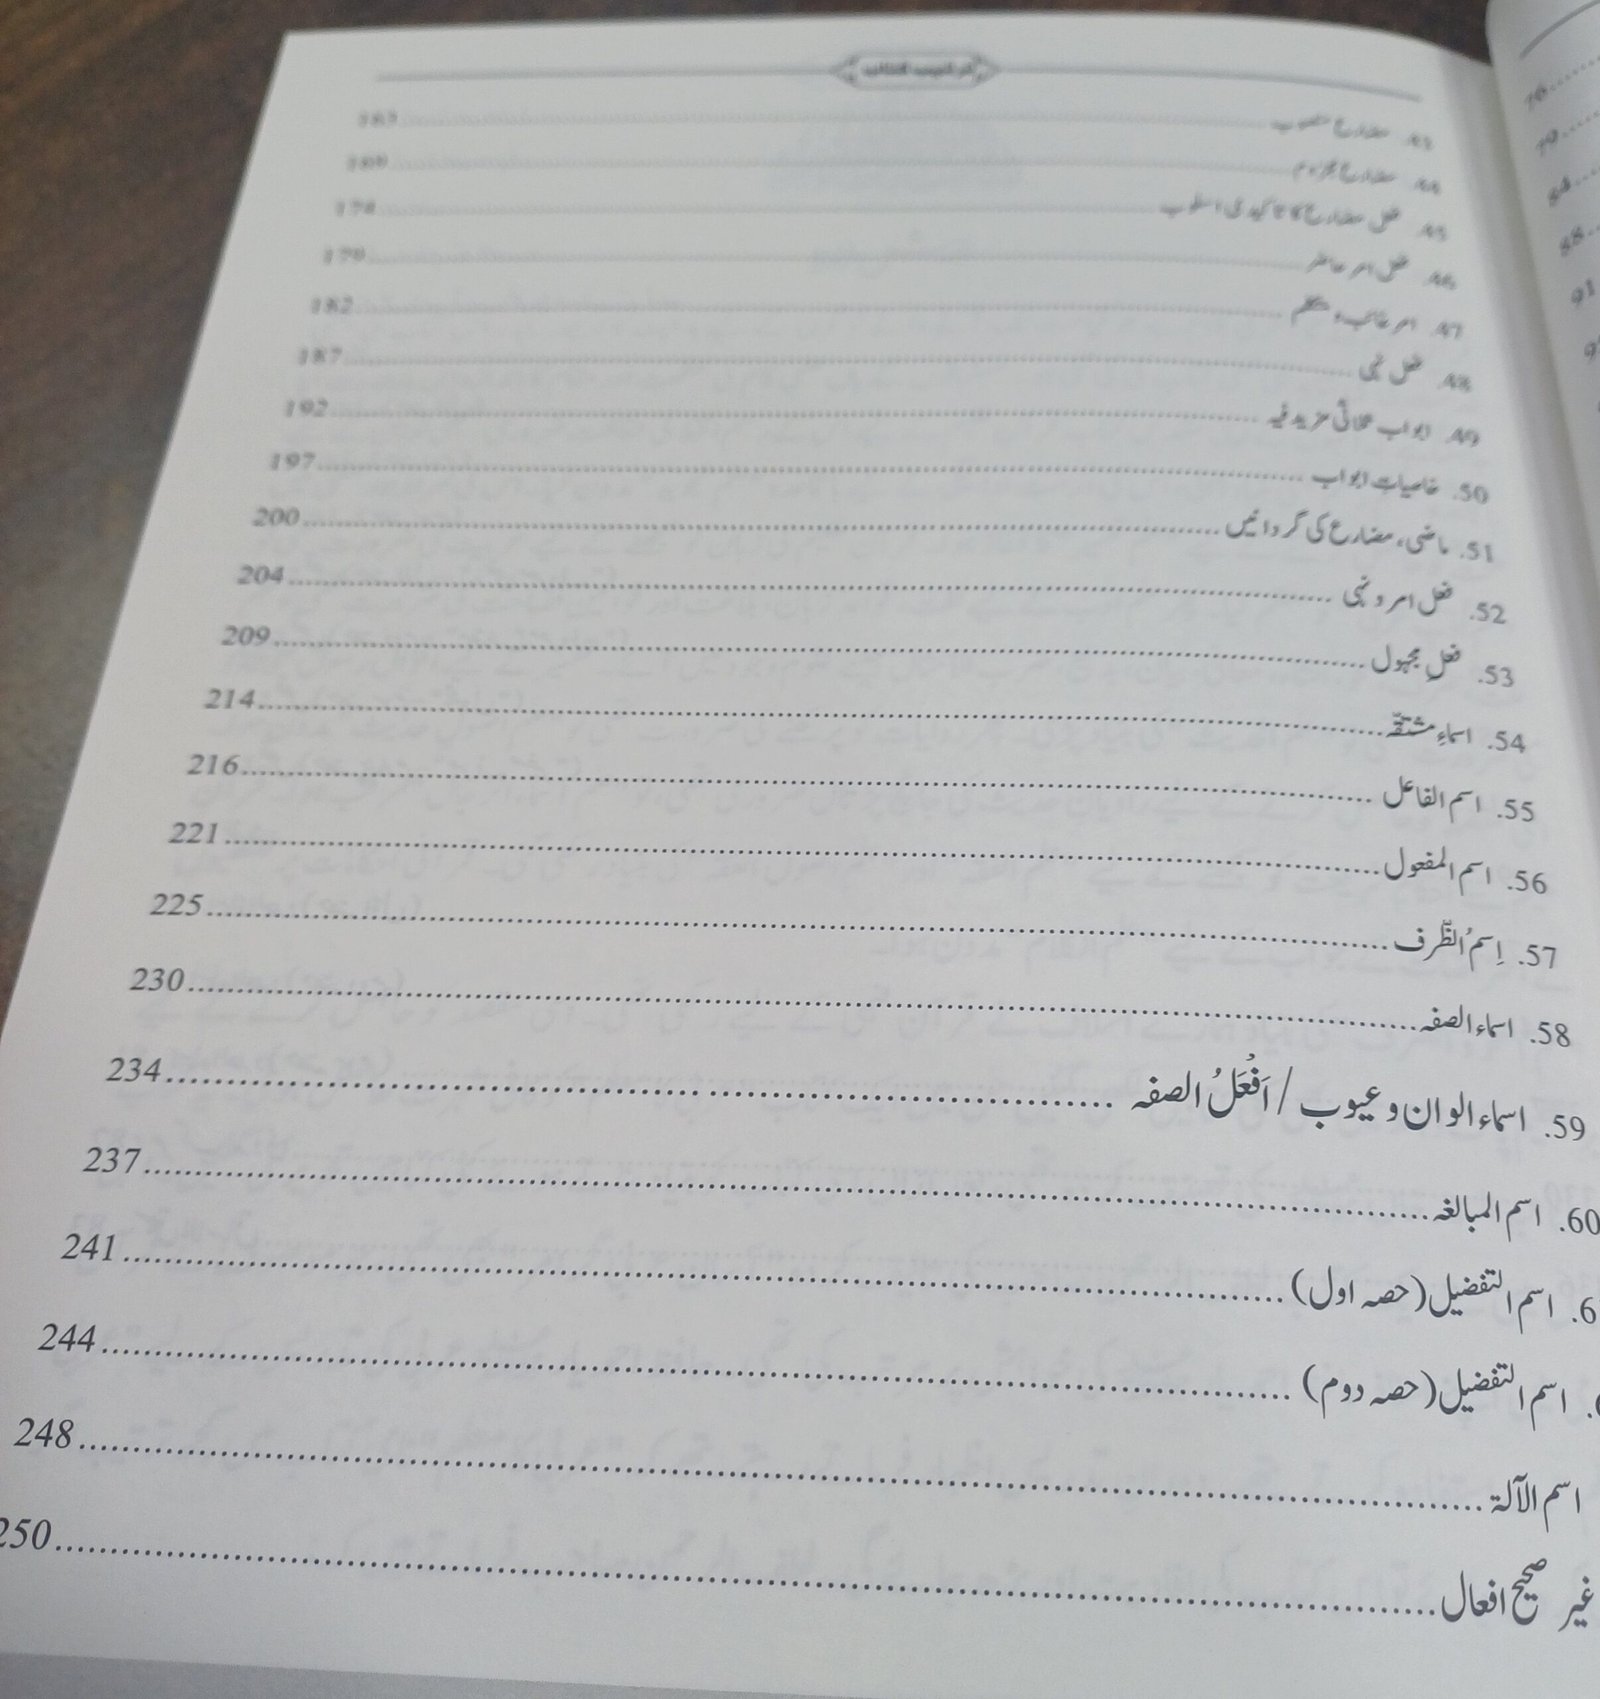 ترتیب کتاب
43. مضارع منصوب 163
44. مضارع مجزوم 169
45. فعل مضارع کا تاکیدی اسلوب 174
46. فعل امر حاضر 179
47. امر غائب و متکلم 182
48. فعل نہی 187
49. ابواب ثلاثی مزید فیہ 192
50. خاصیات ابواب 197
51. ماضی، مضارع کی گردانیں 200
52. فعل امر و نہی 204
53. فعلِ مجہول 209
54. اسماءِ مشتقّہ 214
55. اسم الفاعل 216
56. اسم المفعول 221
57. اِسمُ الظّرف 225
58. اسماء الصفہ 230
59. اسماء الوان و عیوب / اَفْعَلُ الصفہ 234
60. اسم المبالغہ 237
6. اسم التفضیل (حصہ اول) 241
اسم التفضیل (حصہ دوم) 244
اسم الآلۃ 248
غیر صحیح افعال 250
76
79
84
88
91